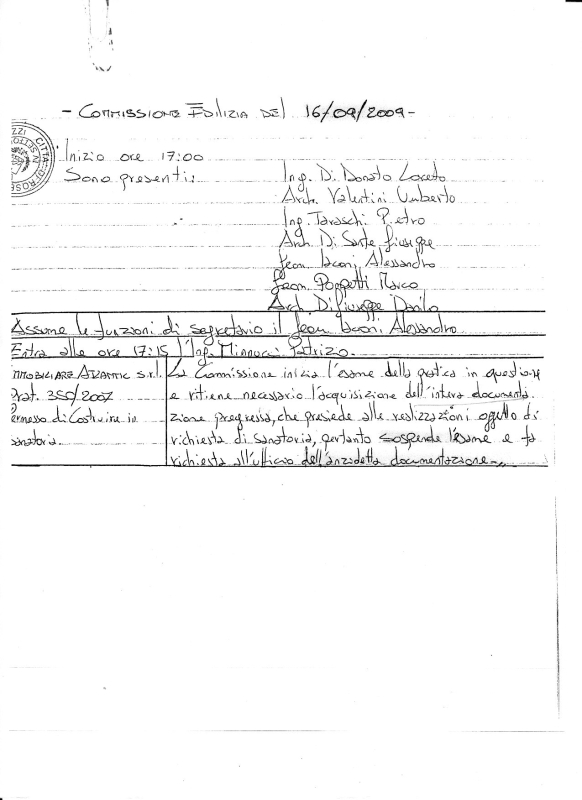 - COMMISSIONE EDILIZIA DEL 16/09/2009 -
CITTÀ DI ROSE
Inizio ore 17:00
Sono presenti:
Ing. Di Donato Loreto
Arch. Valentini Umberto
Ing. Taraschi Pietro
Arch. Di Sante Giuseppe
Geom. Iaconi Alessandro
Geom. Poppetti Marco
Arch. Di Giuseppe Danilo
Assume le funzioni di segretario il Geom. Iaconi Alessandro
Entra alle ore 17:15 l'Ing. Minnucci Patrizio.
IMMOBILIARE ATLANTIC S.r.l.
Prat. 350/2007
Permesso di Costruire in
sanatoria.
La Commissione inizia l'esame della pratica in questione
e ritiene necessario l'acquisizione dell'intera documenta
zione pregressa, che presiede alle realizzazioni oggetto di
richiesta di sanatoria, pertanto sospende l'esame e fa
richiesta all'ufficio dell'anzidetta documentazione